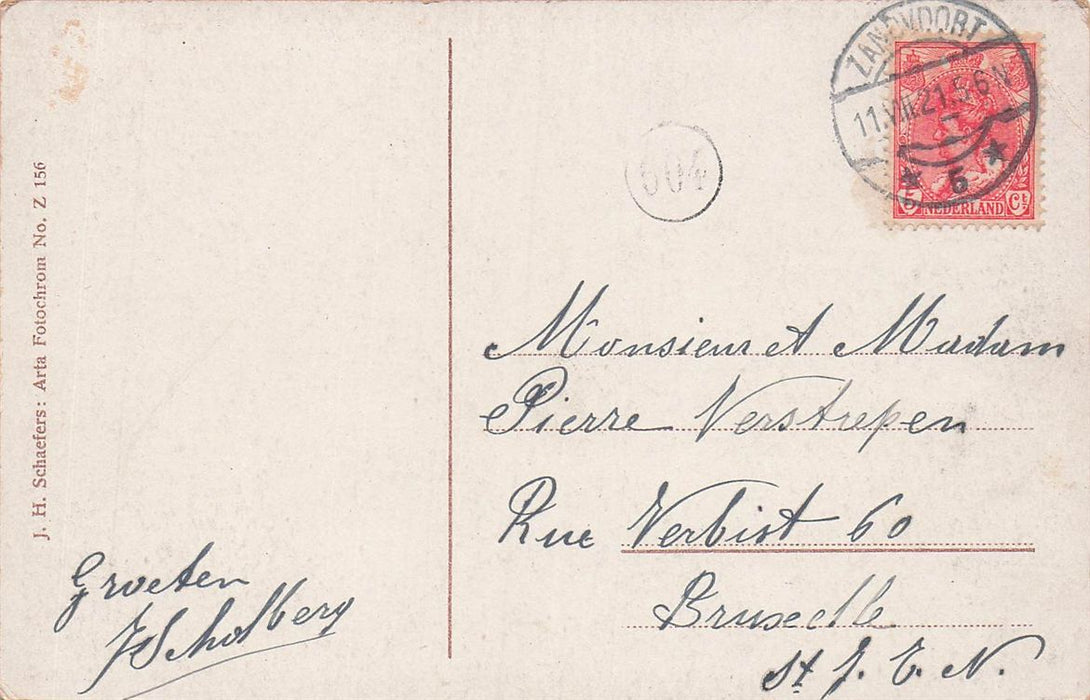 J. H. Schaefers: Arta Fotochrom No. Z 156
ZANDVOORT
11.VIII.21.5-6N
5
604
5 NEDERLAND Ct
Monsieur et Madam
Pierre Verstrepen
Rue Verbist 60
Bruxelle
St J. T. N.
Groeten
JScholberg